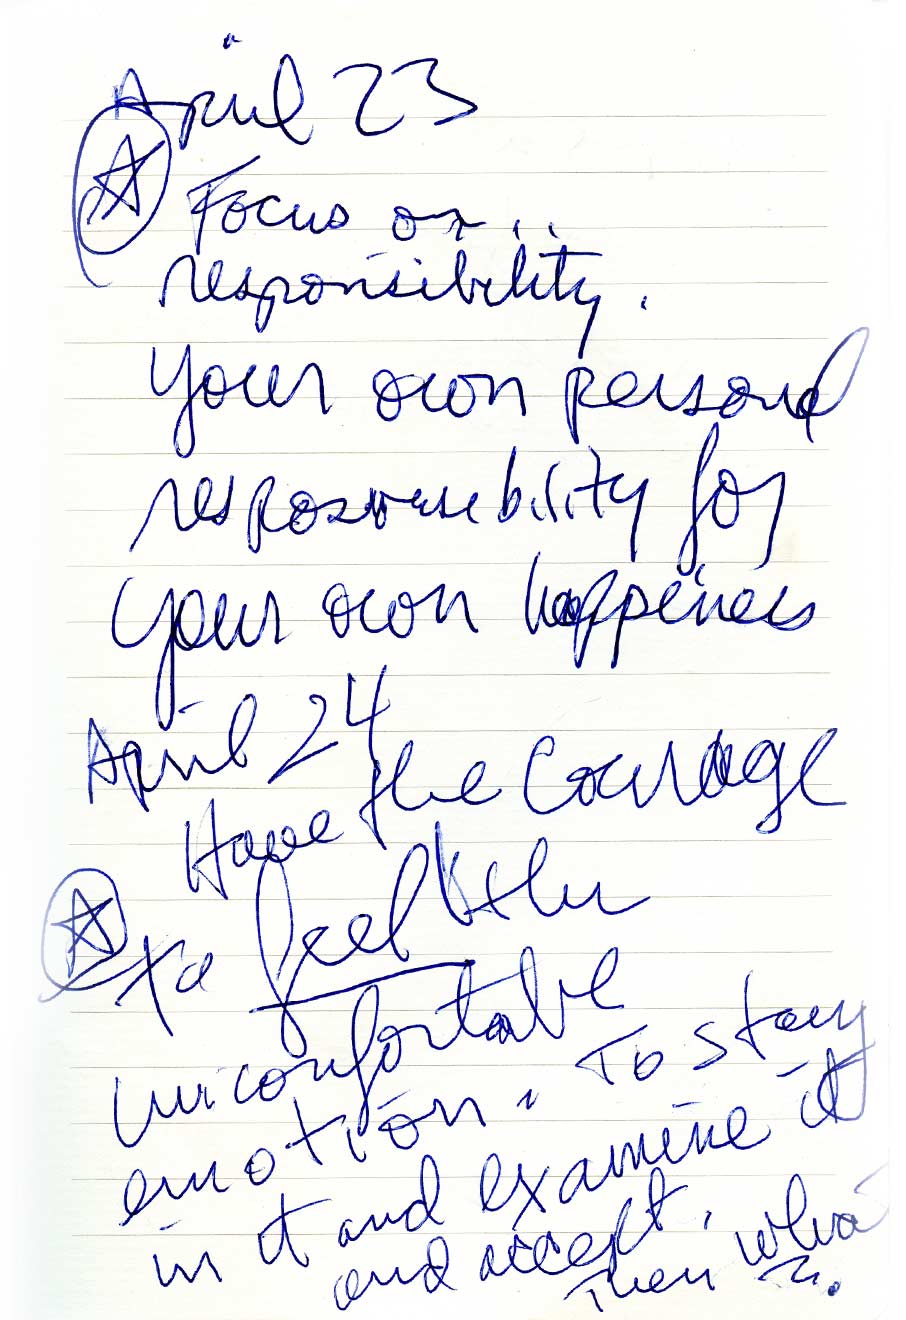 April 23
Focus on..
responsibility.
Your own personal
responsibility for
your own happiness
April 24
Have the Courage
to feel the
uncomfortable
emotion. To stay
in it and examine it
and accept. Then what